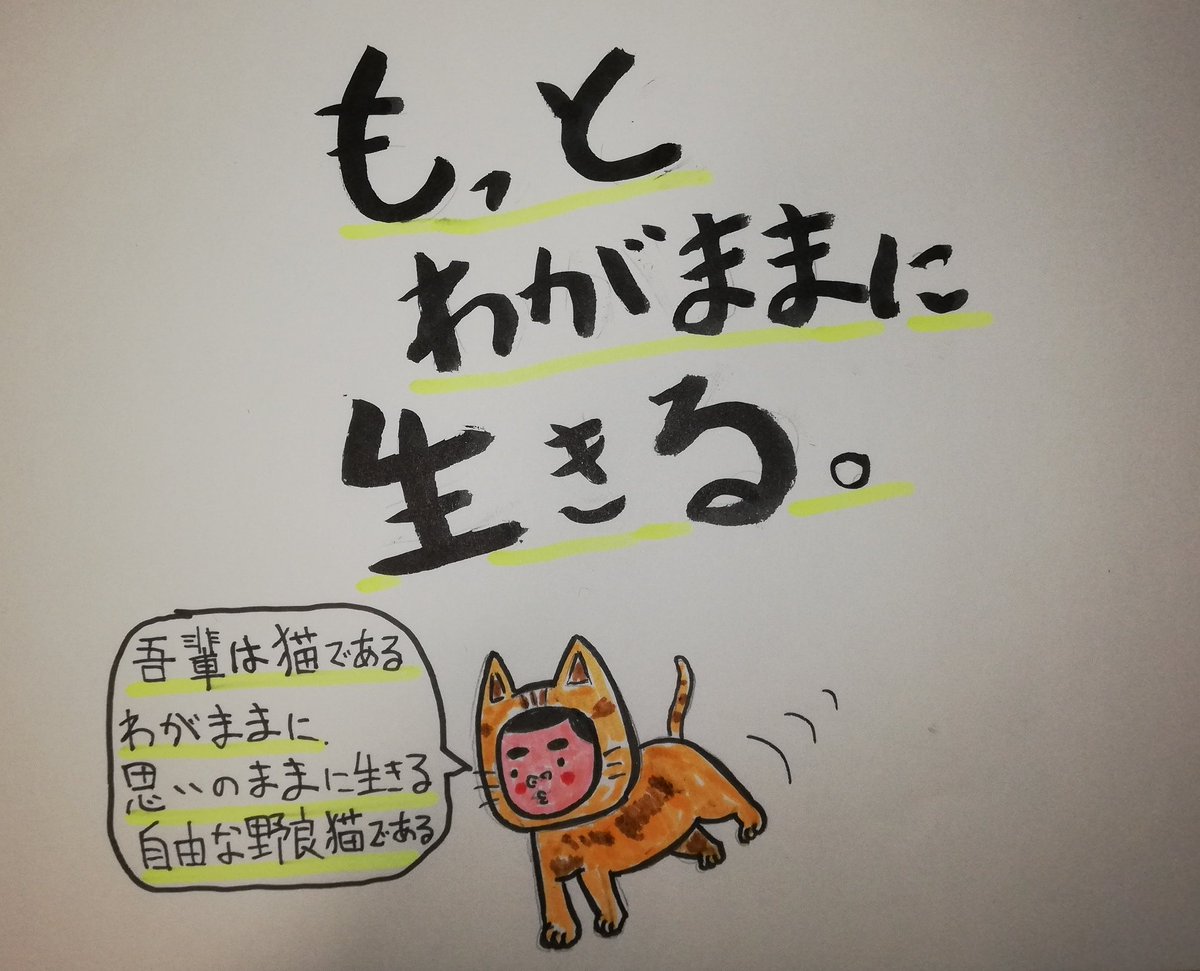 もっと
わがままに
生きる。
吾輩は猫である
わがままに
思いのままに生きる
自由な野良猫である